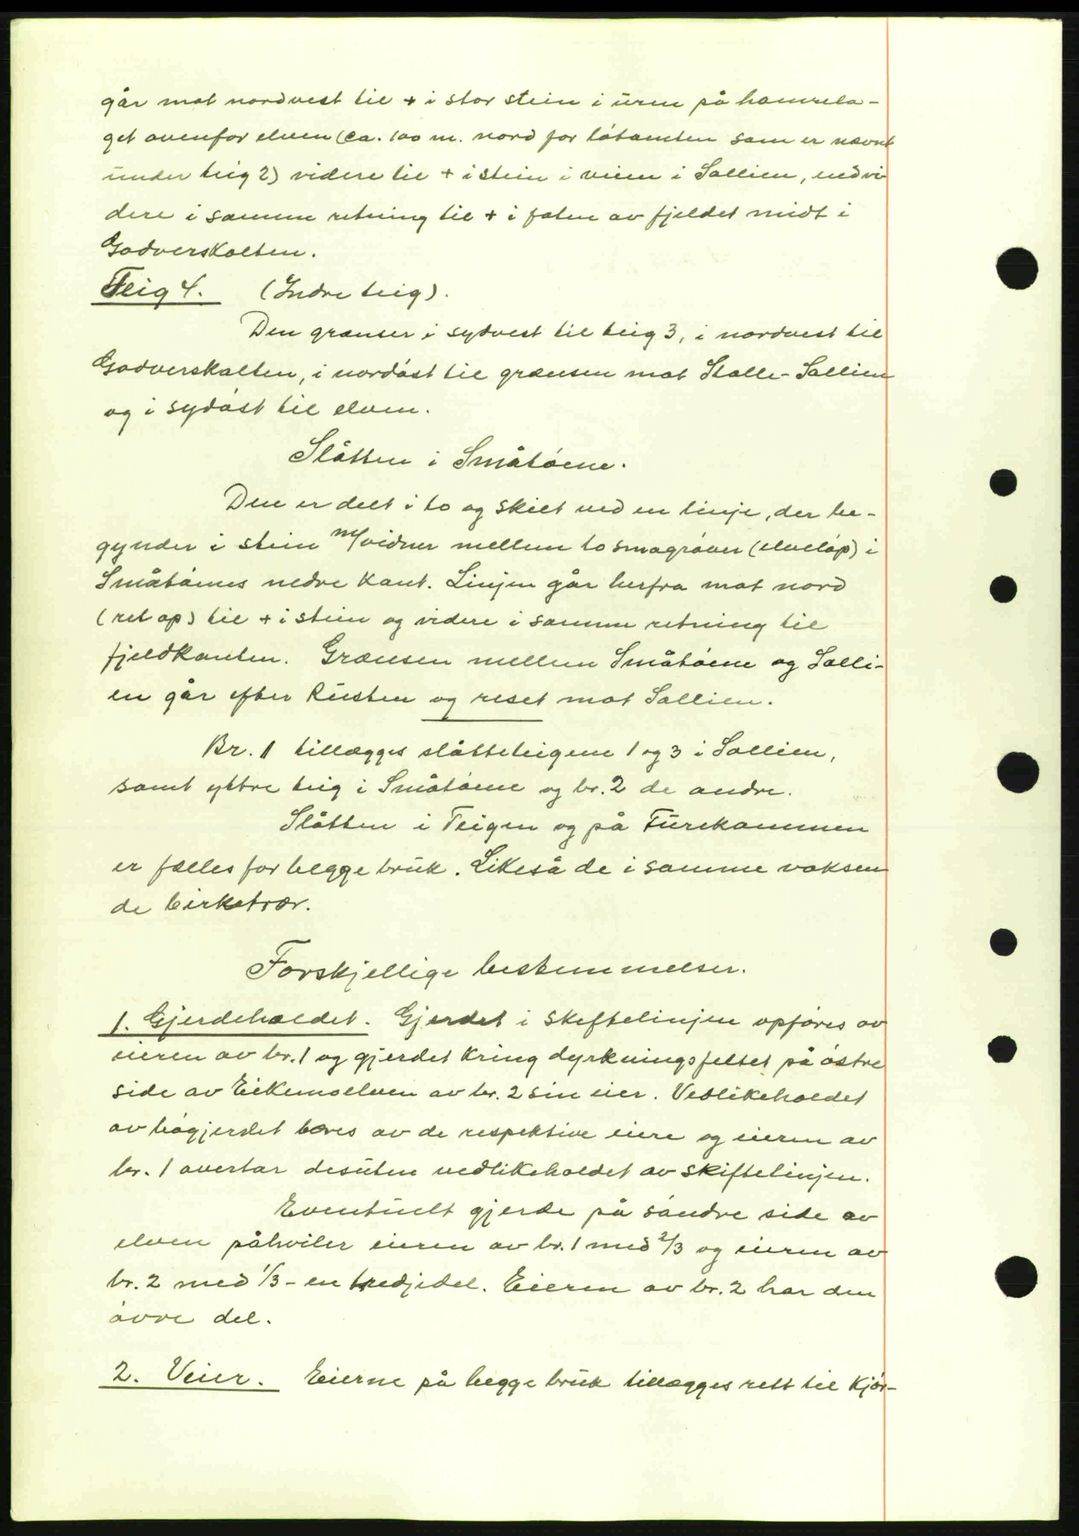 går mot nordvest til + i stor stein i uren på hamrela-
get ovenfor elven (ca. 100 m. nord for tótomten som er nævnt
under teig 2) videre til + i stein i veien i Sallien, end vi
dere i samme retning til + i foten av fjeldet midt i
Godverskolten.
Teig 4. (Indre teig).
Den grænser i sydvest til teig 3, i nordvest til
Godverskolten, i nordóst til grænsen mot Stalle-Sallien
og i sydóst til elven.
Slåtten i Småtóene.
Den er delt i to og skilt ved en linje, der be-
gynder i stein m/vidner mellem to smågróver (elveløp) i
Småtóenes nedre kant. Linjen går herfra mot nord
(ret op) til + i stein og videre i samme retning til
fjeldkanten. Grænsen mellem Småtóene og Salli-
en går efter Rusten og reset mot Sallien.
Br. 1 tillægges slåtteteigene 1 og 3 i Sallien,
samt yttre teig i Småtóene og br. 2 de andre.
Slåtten i Teigen og på Furekammen
er fælles for begge bruk. Likeså de i samme voksen
de birketrær.
Forskjellige bestemmelser.
1. Gjerdeholdet. Gjerdet i skiftelinjen opføres av
eieren av br. 1 og gjerdet kring dyrkningsfeltet på óstre
side av Eikemoelven av br. 2 sin eier. Vedlikeholdet
av bógjerdet bæres av de respektive eiere og eieren av
br. 1 overtar desuten vedlikeholdet av skiftelinjen.
Eventuelt gjerde på sóndre side av
elven påhviler eieren av br. 1 med 2/3 og eieren av
br. 2 med 1/3 - en tredjedel. Eieren av br. 2 har den
óvre del.
2. Veier. Eierne på begge bruk tillægges rett til kjór-